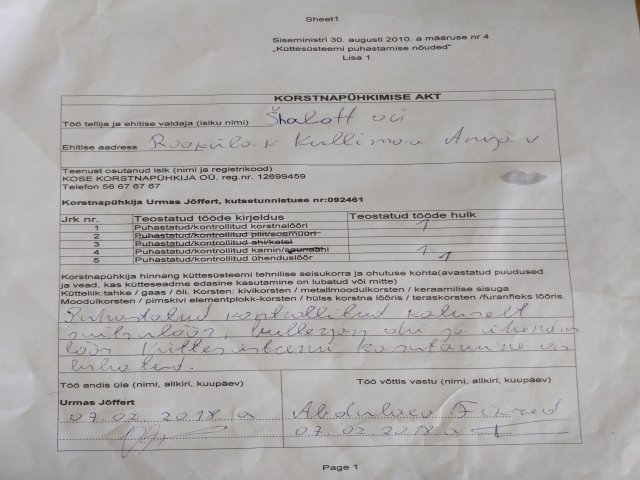 Sheet1
Siseministri 30. augusti 2010. a määruse nr 4
„Küttesüsteemi puhastamise nõuded"
Lisa 1
KORSTNAPÜHKIMISE AKT
Töö tellija ja ehitise valdaja (isiku nimi) Shalott OÜ
Ehitise aadress
Teenust osutanud isik (nimi ja registrikood)
KOSE KORSTNAPÜHKIJA OÜ, reg.nr. 12699459
Telefon 56 67 67 67
Korstnapühkija Urmas Jõffert, kutsetunnistuse nr:092461
Jrk nr. Teostatud tööde kirjeldus Teostatud tööde hulk
1 Puhastatud/kontrollitud korstnalõõri 1
2 Puhastatud/kontrollitud pliit/soemüüri
3 Puhastatud/kontrollitud ahi/katel
4 Puhastatud/kontrollitud kamin/saunaahi 1
5 Puhastatud/kontrollitud ühenduslõõr 1
Korstnapühkija hinnang küttesüsteemi tehnilise seisukorra ja ohutuse kohta(avastatud puudused
ja vead, kas kütteseadme edasine kasutamine on lubatud või mitte)
Kütteliik:tahke / gaas / õli. Korsten: kivikorsten / metallmoodulkorsten / keraamilise sisuga
Moodulkorsten / pimskivi elementplokk-korsten / hülss korstna lõõris / teraskorsten /furanfleks lõõris.
Puhastatud kontrollitud
suitsulõõr, ahi ja ühendus
lõõr Küttesüsteemi kasutamine on
lubatud.
Töö andis üle (nimi, allkiri, kuupäev) Töö võttis vastu (nimi, allkiri, kuupäev)
Urmas Jõffert
07.02.2018 a Abdulaev
07.02.2018 a
Page 1